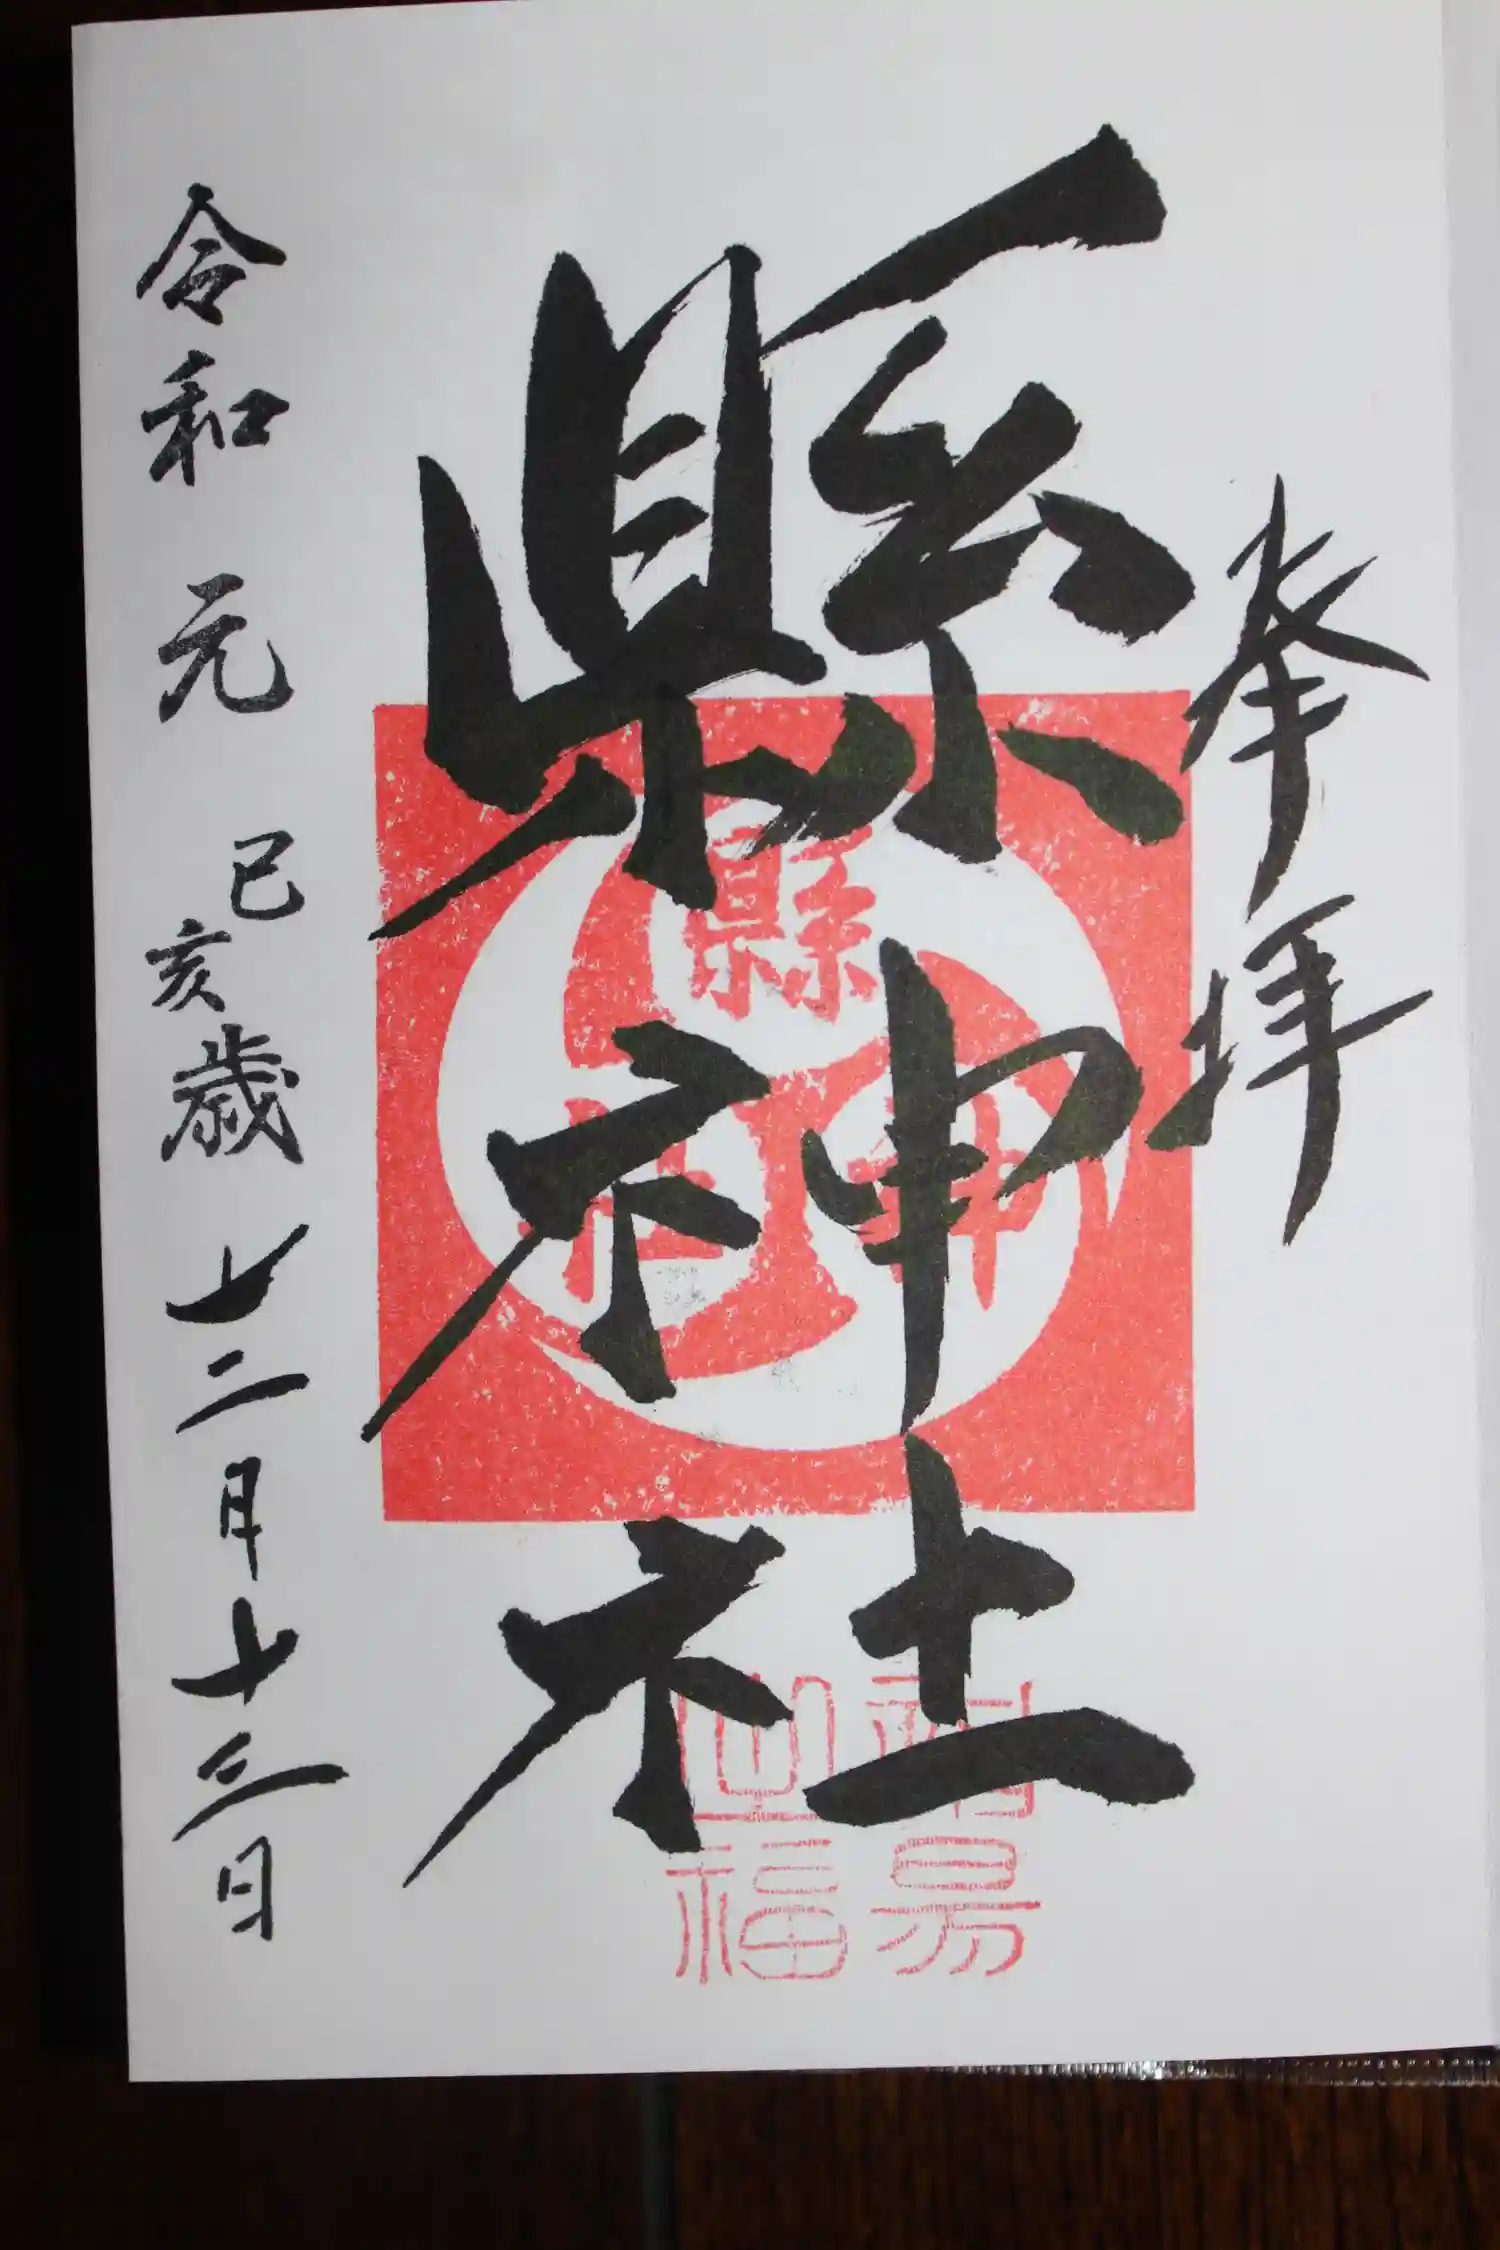 奉拝
縣神社
令和元己亥歳十二月十三日
縣
神
社
福